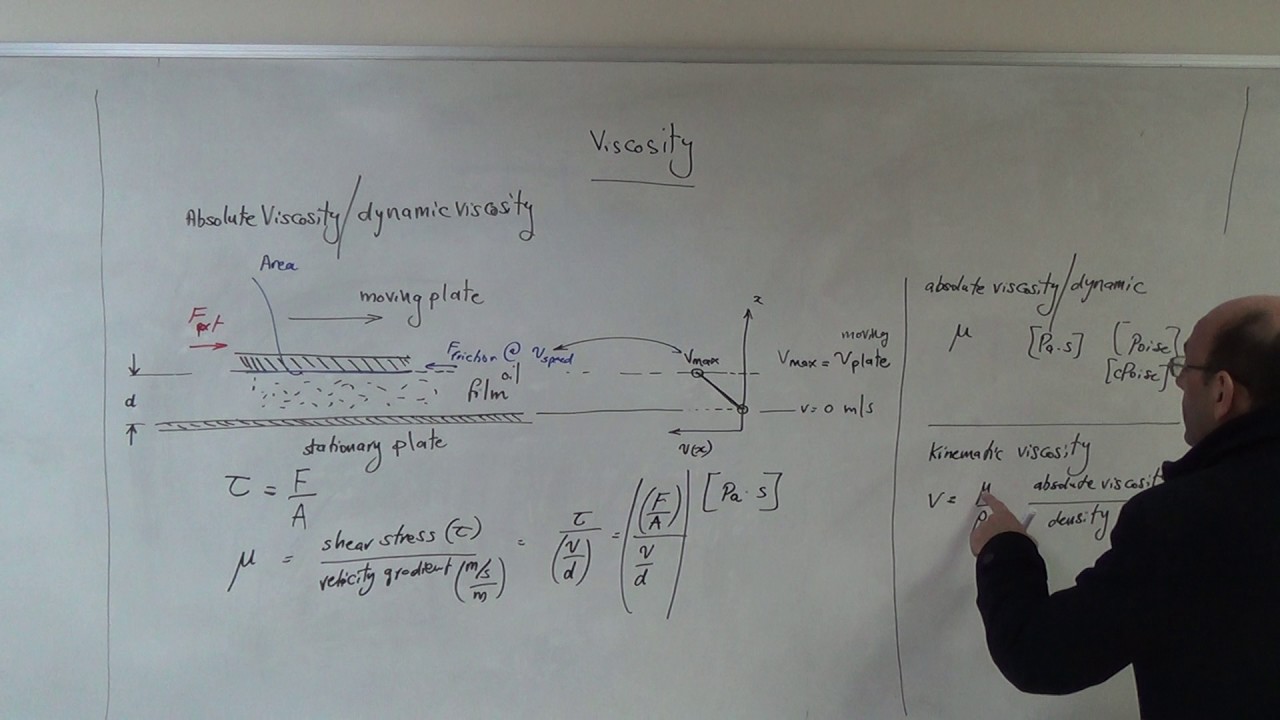 Viscosity
Absolute Viscosity/dynamic viscosity
Area
moving plate
F ext
F friction @ v speed
d
oil
film
stationary plate
x
Vmax
moving
Vmax = Vplate
v = 0 m/s
v(x)
τ = F/A
μ = shear stress (τ) / velocity gradient (m/s / m) = τ / (v/d) = (F/A) / (v/d) [Pa·s]
absolute viscosity/dynamic
μ [Pa·s] [Poise]
[cPoise]
Kinematic viscosity
ν = μ/ρ absolute viscosit / density